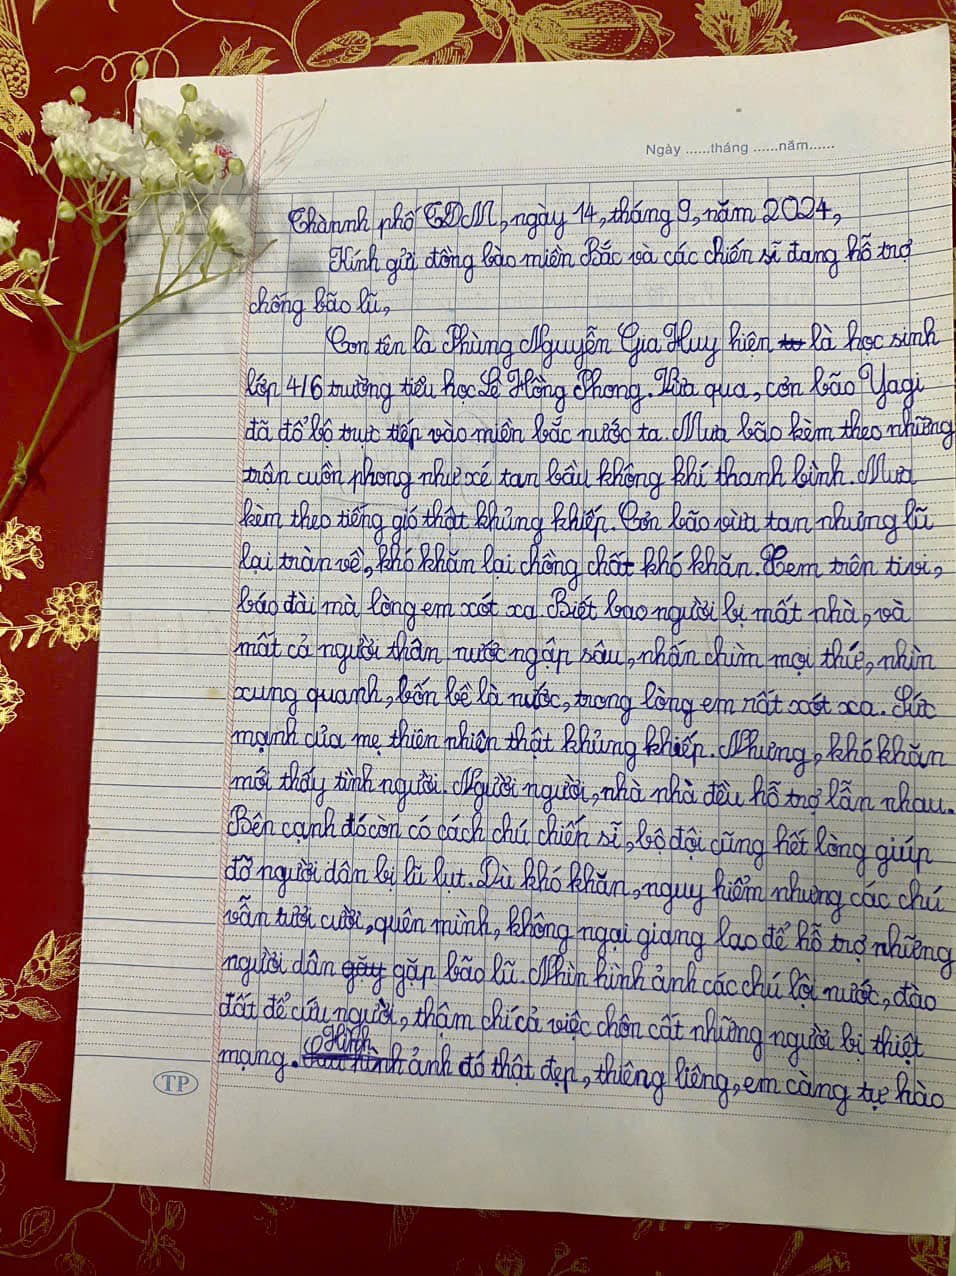 Ngày ......tháng ......năm......
Thànnh phố TDM, ngày 14, tháng 9, năm 2024,
Kính gửi đồng bào miền Bắc và các chiến sĩ đang hỗ trợ
chống bão lũ,
Con tên là Phùng Nguyễn Gia Huy hiện là học sinh
lớp 4/6 trường tiểu học Lê Hồng Phong. Vừa qua, cơn bão Yagi
đã đổ bộ trực tiếp vào miền bắc nước ta. Mưa bão kèm theo những
trận cuồn phong như xé tan bầu không khí thanh bình. Mưa
kèm theo tiếng gió thật khủng khiếp. Cơn bão vừa tan nhưng lũ
lại tràn về, khó khăn lại chồng chất khó khăn. Xem trên tivi,
báo đài mà lòng em xót xa. Biết bao người bị mất nhà, và
mất cả người thân nước ngập sâu, nhấn chìm mọi thứ, nhìn
xung quanh, bốn bề là nước, trong lòng em rất xót xa. Sức
mạnh của mẹ thiên nhiên thật khủng khiếp. Nhưng, khó khăn
mới thấy tình người. Người người, nhà nhà đều hỗ trợ lẫn nhau.
Bên cạnh đó còn có cách chú chiến sĩ, bộ đội cũng hết lòng giúp
đỡ người dân bị lũ lụt. Dù khó khăn, nguy hiểm nhưng các chú
vẫn tươi cười, quên mình, không ngại giang lao để hỗ trợ những
người dân gặp bão lũ. Nhìn hình ảnh các chú lội nước, đào
đất để cứu người, thậm chí cả việc chôn cất những người bị thiệt
mạng. Hình ảnh đó thật đẹp, thiêng liêng, em càng tự hào
TP